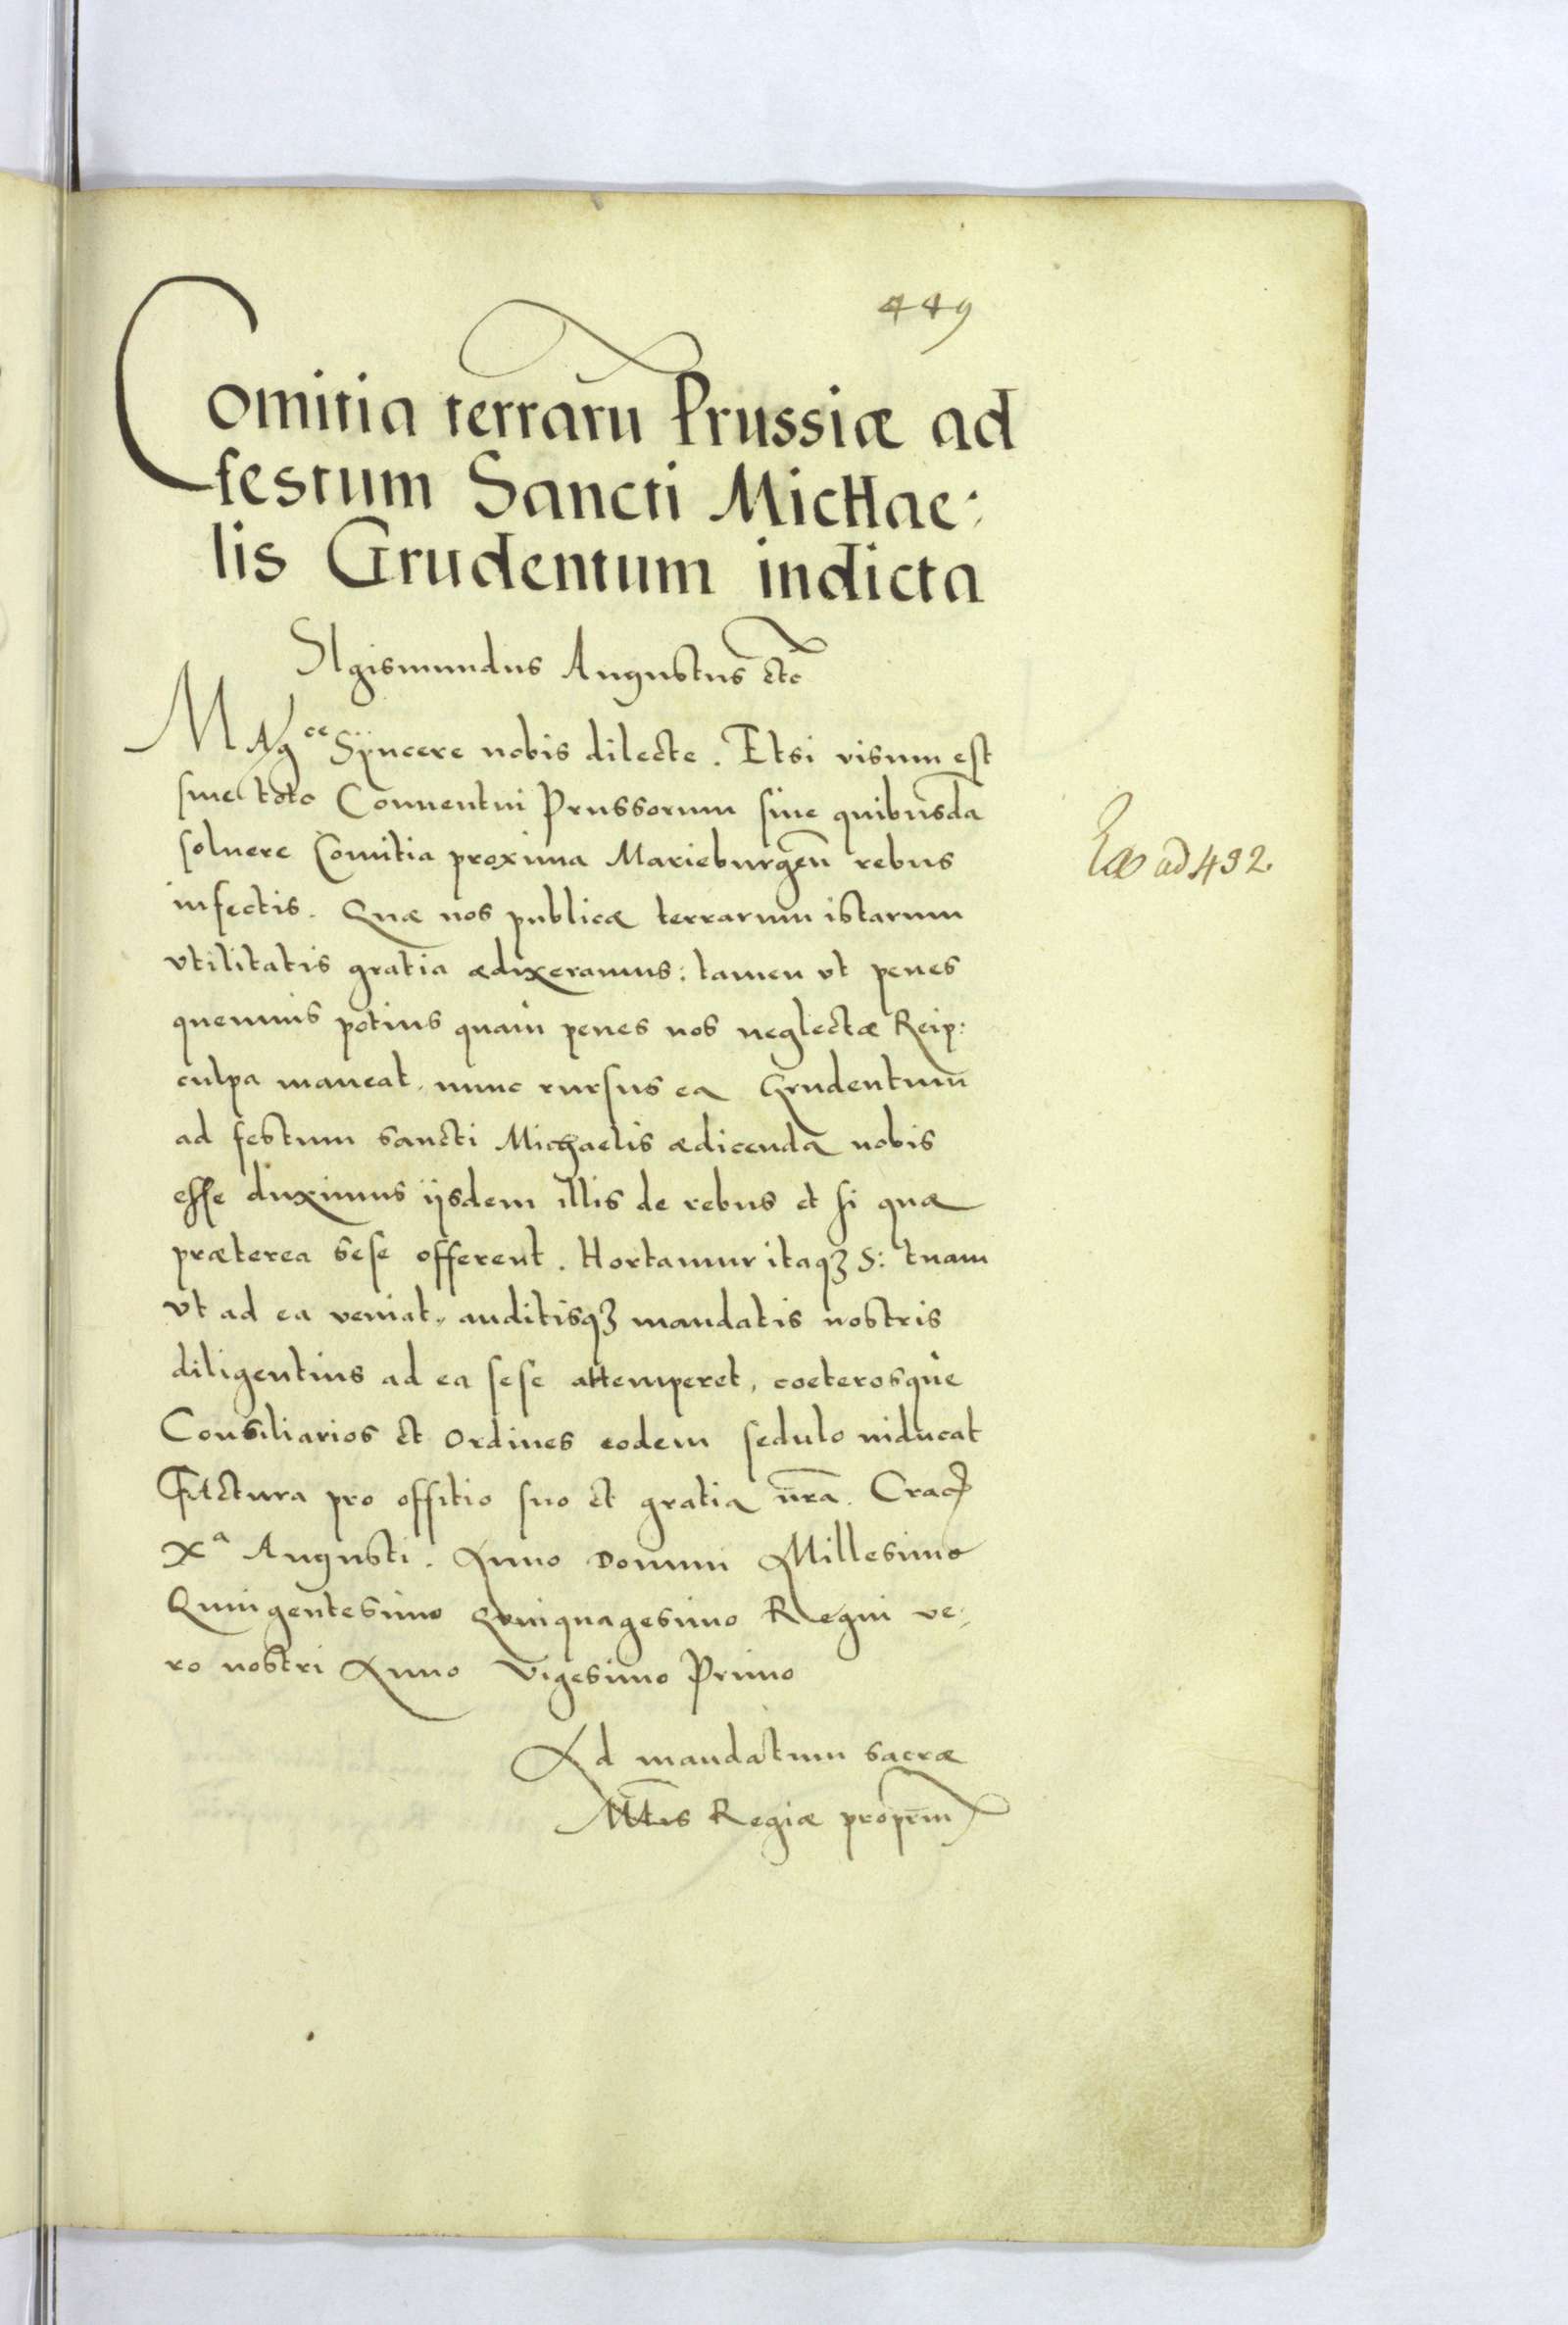 449
Comitia terraru Prussiæ ad
festum Sancti Michae:
lis Grudentum indicta
SIgismundus Augustus etc
MAg<sup>ce</sup> Sÿncere nobis dilecte. Etsi visum est
siue toto Conuentui Prussorum siue quibusda
soluere Comitia proxima Marieburgen̄ rebus
infectis. Quæ nos publicæ terrarum istarum
vtilitatis gratia ædixeramus: tamen vt penes
quemuis potius quam penes nos neglectæ Reip:
culpa maneat, nunc rursus ea Grudentum
ad festum sancti Michaelis ædicenda nobis
esse duximus ÿsdem illis de rebus et si quæ
præterea sese offerent. Hortamur itaqꝫ S: tuam
vt ad ea veniat, auditisqꝫ mandatis nostris
diligentius ad ea sese attemperet, coeterosque
Consiliarios et Ordines eodem sedulo inducat
FActura pro offitio suo et gratia nr̄a. Crac
Xª Augusti. Anno Domini Millesimo
Quingentesimo Quinquagesimo Regni ve:
ro nostri Anno Vigesimo Primo
Ad mandatum sacræ
Mt̄tis Regiæ propriū
ad 492.